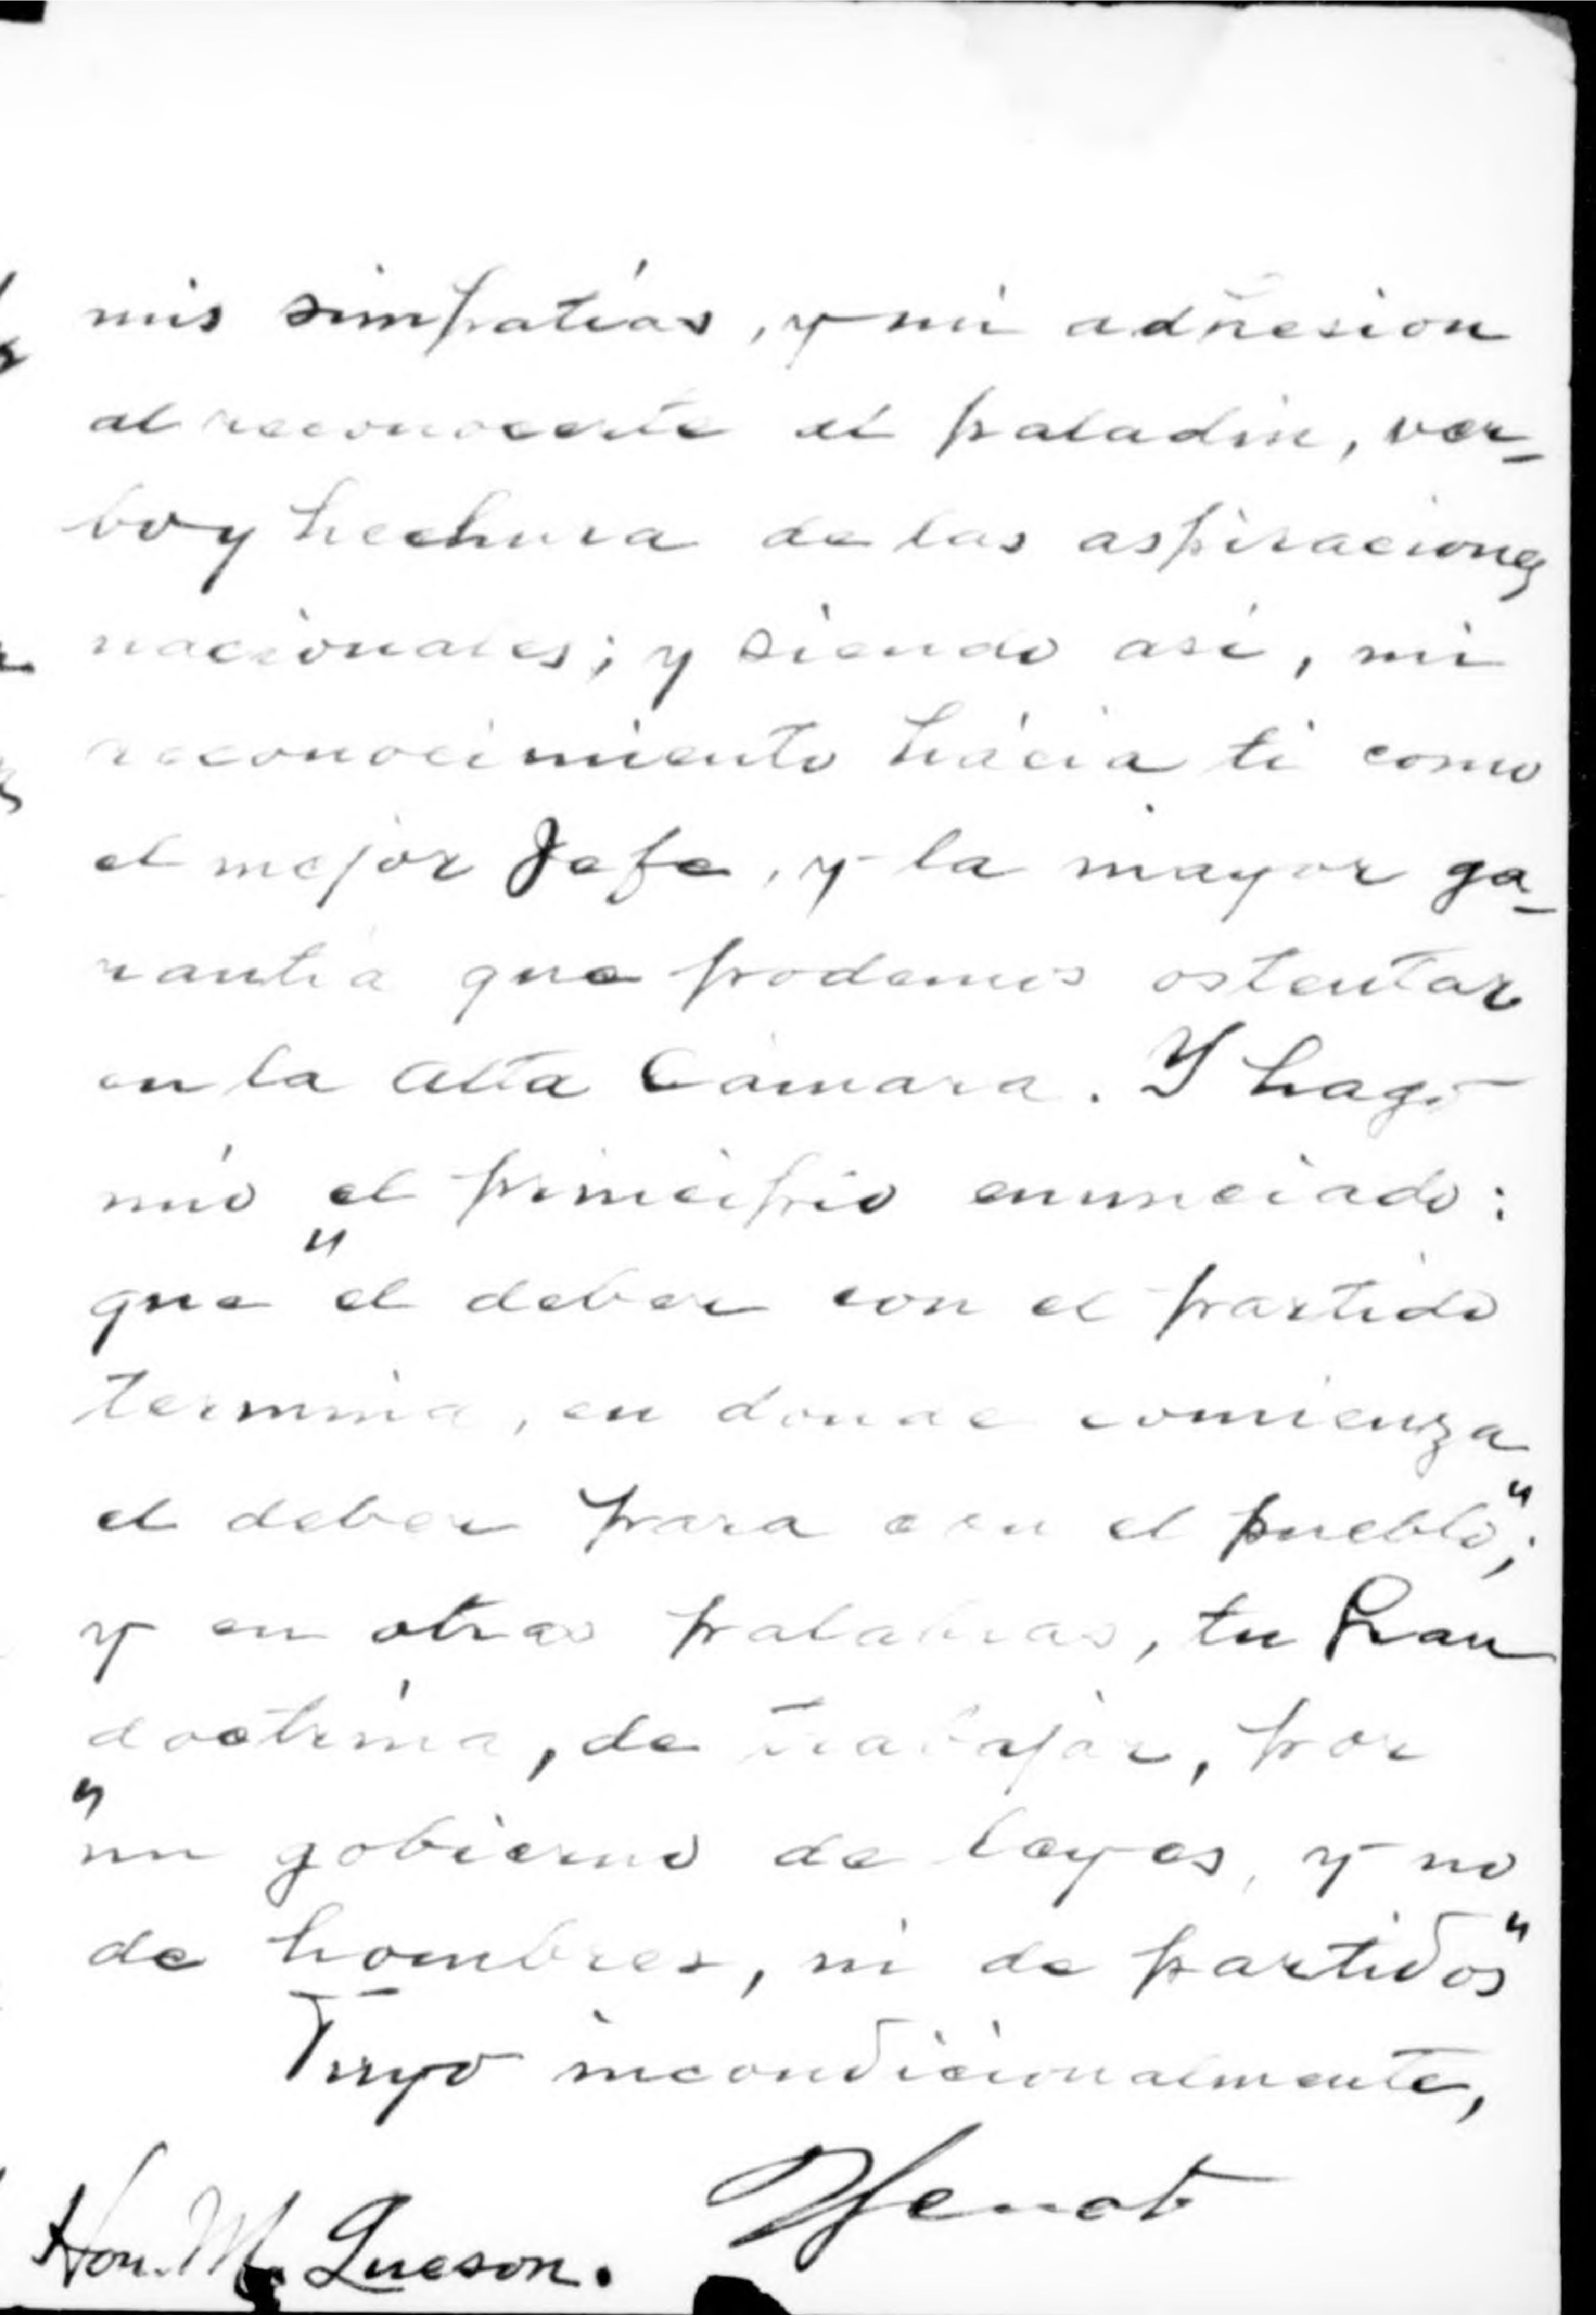 mis simpatías, y mi adhesion
al reconocerte el paladin, ver-
bo y hechura de las aspiraciones
nacionales; y siendo asi, mi
reconocimiento hácia ti como
el mejor Jefe, y la mayor ga-
rantia que podemos ostentar
en la Alta Cámara. Y hago
mío el principio enunciado:
que "el deber con el partido
termina, en donde comienza
el deber para con el pueblo";
y en otras palabras, tu Gran
doctrina, de trabajar, por
"un gobierno de leyes, y no
de hombres, ni de partidos"
Tuyo incondicionalmente,
Hon. M. Queson.